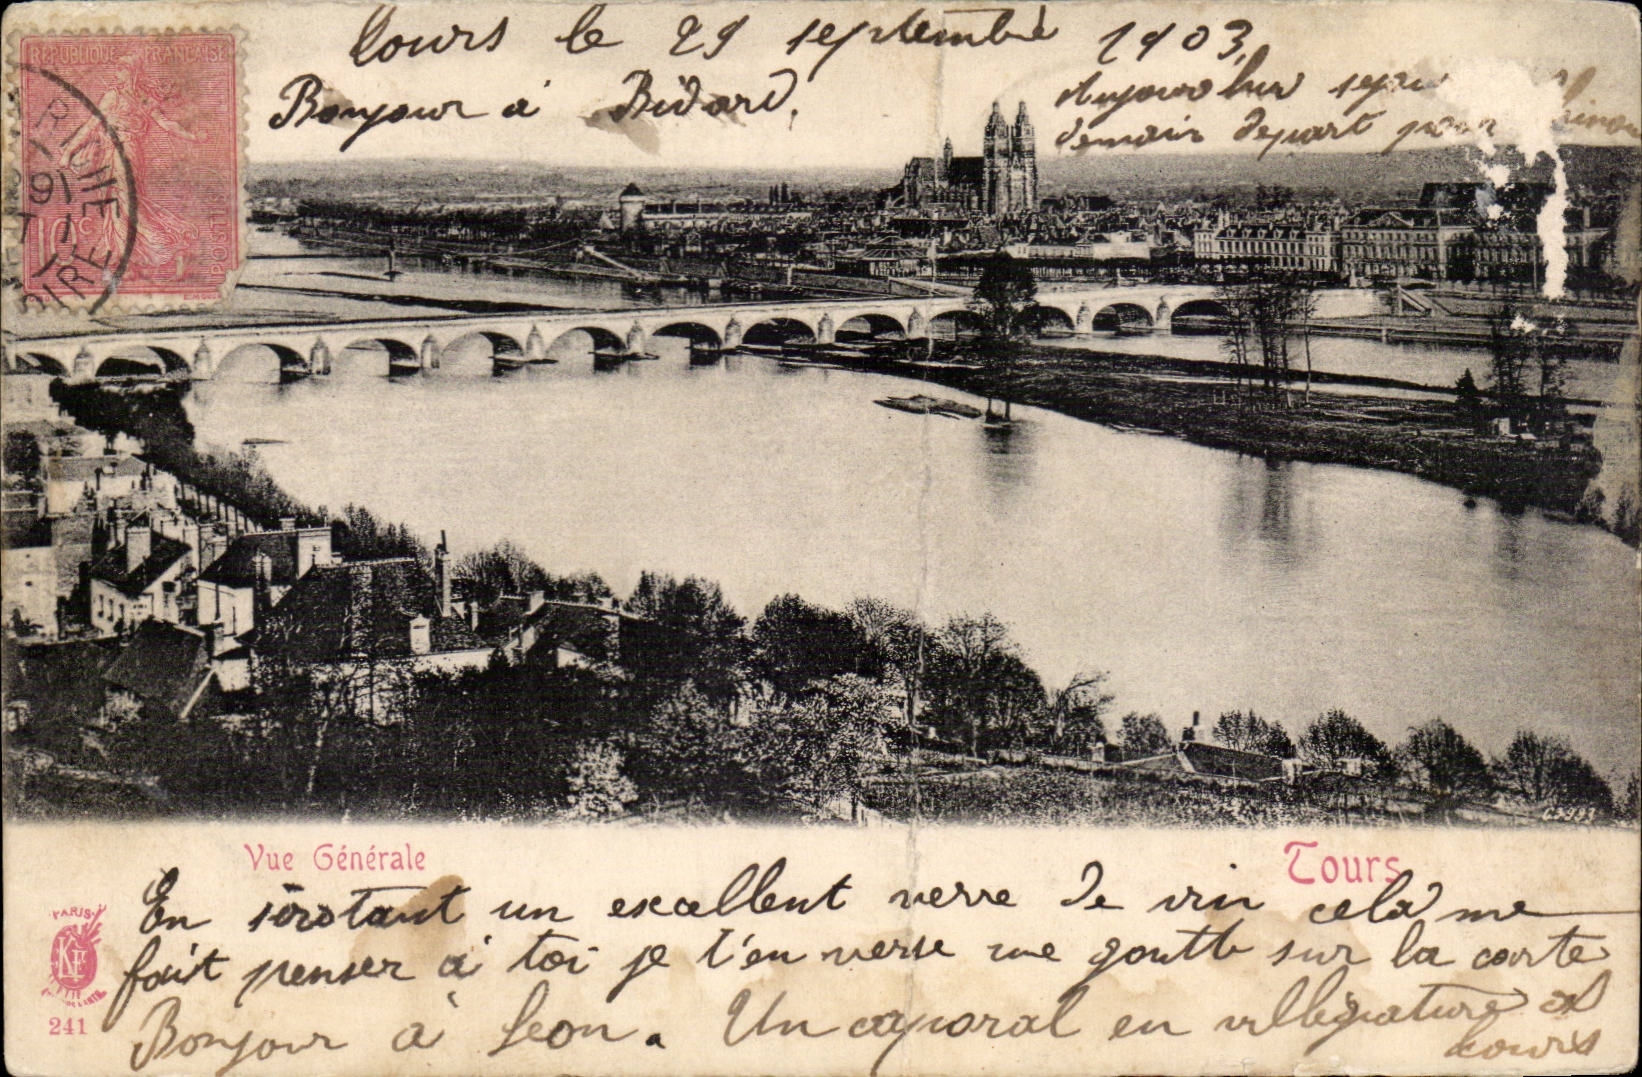 Tours le 29 septembre 1903,
Bonjour à Bidard.
Aujourd'hui
demain depart pour
REPUBLIQUE FRANÇAISE
POSTES
10c
Vue Générale
Tours
En sirotant un excellent verre de vin cela me
fait penser à toi je t'en verse une goutte sur la carte
Bonjour à Leon. Un caporal en villégiature à
Tours
PARIS
241